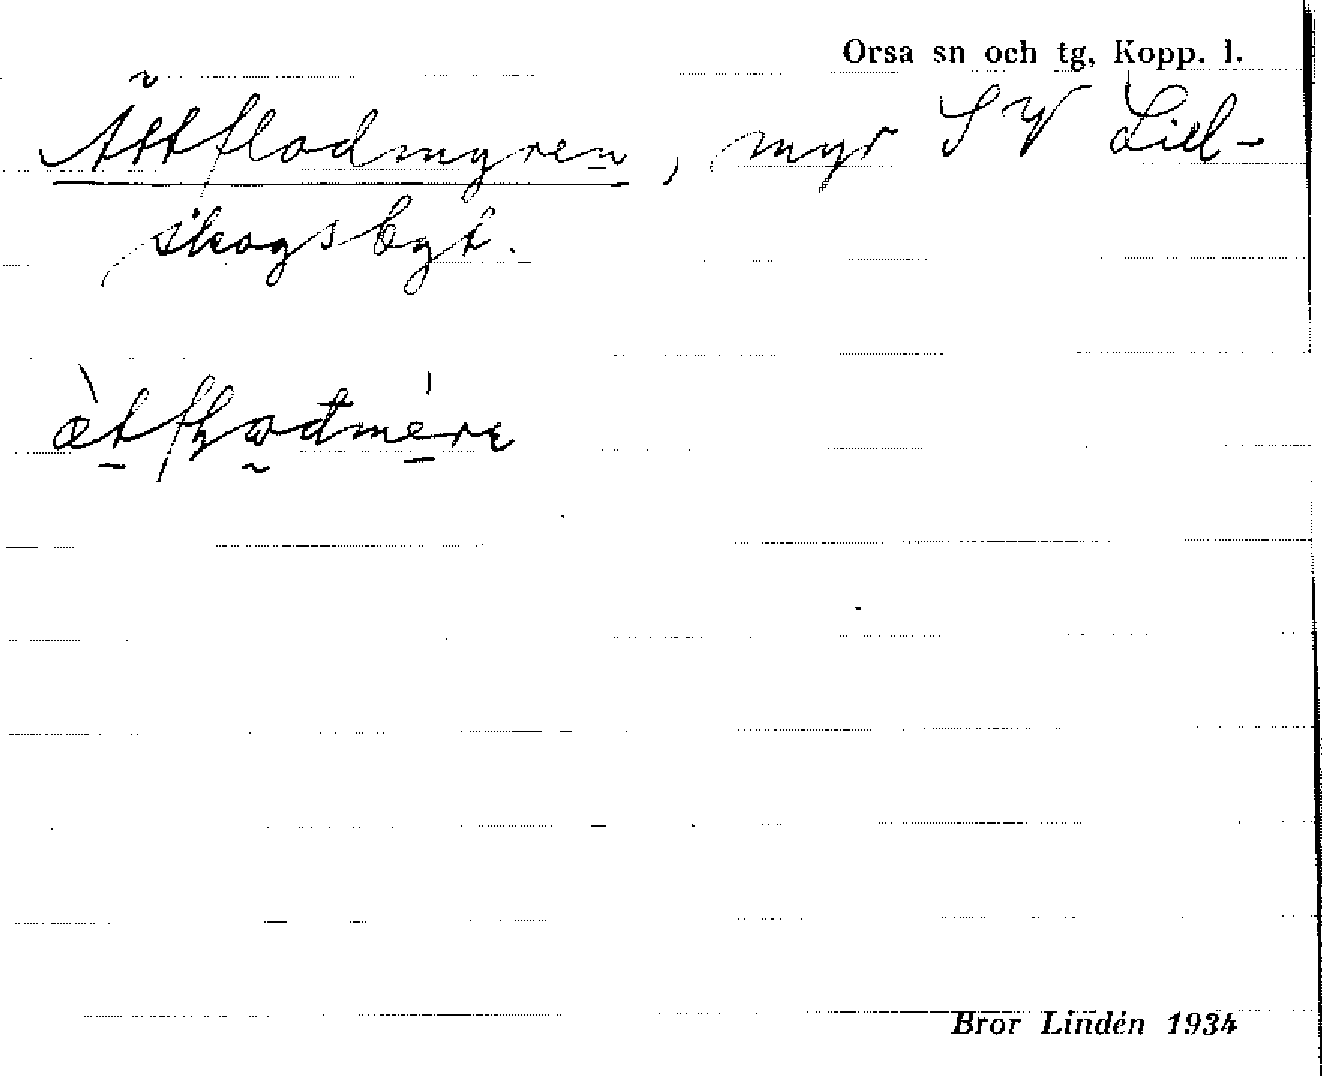 Orsa sn och tg, Kopp. l.
Ättflodmyren, myr SV Lill-
skogsbyt.
Bror Lindén 1934